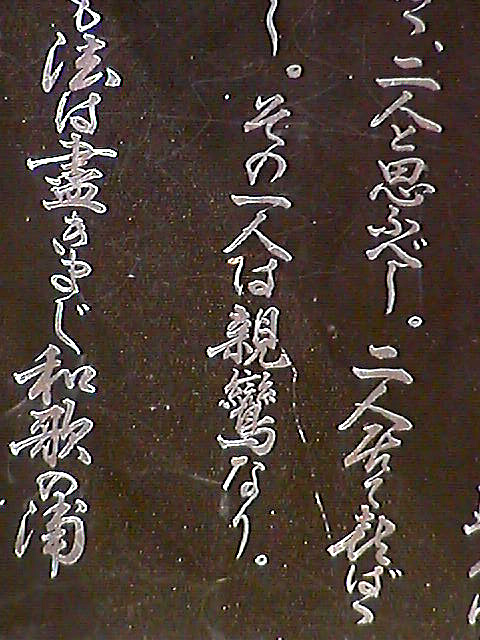 、二人と思ふべし。二人居て喜ばゝ
し。その一人は親鸞なり。
も法は盡きまじ和歌の浦